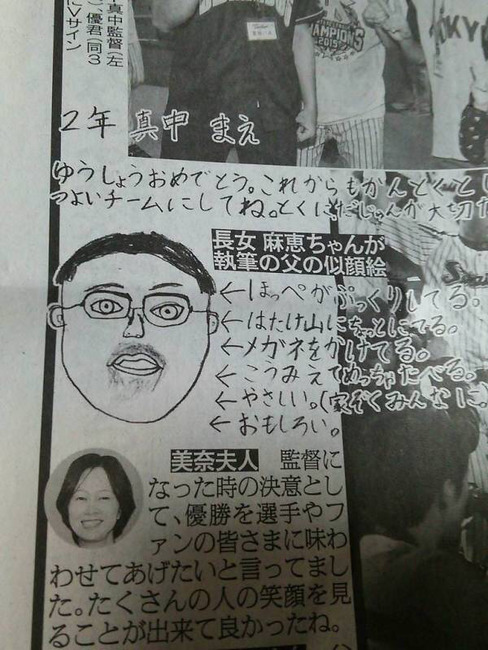 真中監督(左
)、優君(同3
Vサイン
CHAMPIONS
2015
2年 真中 まえ
ゆうしょうおめでとう。これからもかんとくとし
つよいチームにしてね。とくにだじゅんが大切だ
長女 麻恵ちゃんが
執筆の父の似顔絵
←ほっぺがぷっくりしてる。
←はたけ山にちょっとにてる。
←メガネをかけてる。
←こうみえてめっちゃたべる。
←やさしい。(家ぞくみんなに)
←おもしろい。
美奈夫人 監督に
なった時の決意とし
て、優勝を選手やフ
ァンの皆さまに味わ
わせてあげたいと言ってまし
た。たくさんの人の笑顔を見
ることが出来て良かったね。